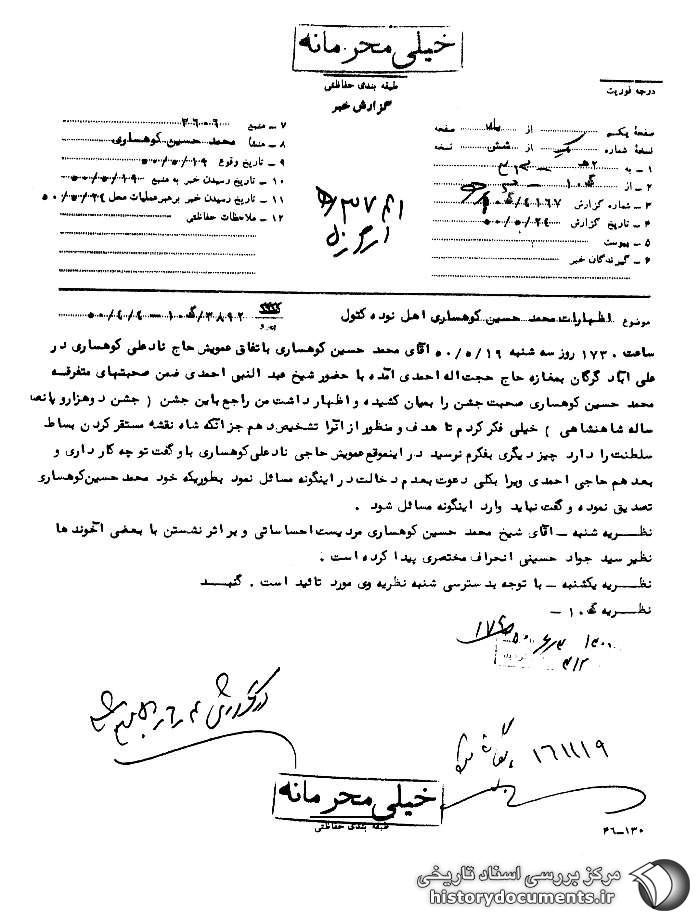 خیلی محرمانه
طبقه بندی حفاظتی
گزارش خبر
درجه فوریت
صفحهٔ یکم از صفحه
نسخهٔ شماره یک از شش نسخه
۱ - به
۲ - از
۳ - شماره گزارش
۴ - تاریخ گزارش ۵۰/۵/۲۴
۵ - پیوست
۶ - گیرندگان خبر
۷ - منبع ۲۶۰۶
۸ - منشأ محمد حسین کوهساری
۹ - تاریخ وقوع ۵۰/۵/۱۹
۱۰ - تاریخ رسیدن خبر به منبع ۵۰/۵/۱۹
۱۱ - تاریخ رسیدن خبر برهبر عملیات محل ۵۰/۵/۲۴
۱۲ - ملاحظات حفاظتی
موضوع اظهارات محمد حسین کوهساری اهل نوده کتول
پیرو
ساعت ۱۷۳۰ روز سه شنبه ۵۰/۵/۱۹ آقای محمد حسین کوهساری باتفاق عمویش حاج نادعلی کوهساری در
علی آباد گرگان بمغازه حاج حجت اله احمدی آمده با حضور شیخ عبد النبی احمدی ضمن صحبتهای متفرقه
محمد حسین کوهساری صحبت جشن را بمیان کشیده و اظهار داشت من راجع باین جشن ( جشن دوهزارو پانصد
ساله شاهنشاهی ) خیلی فکر کردم تا هدف و منظور از آنرا تشخیص دهم جز آنکه شاه نقشه مستقر کردن بساط
سلطنت را دارد چیز دیگری بفکرم نرسید در اینموقع عمویش حاجی نادعلی کوهساری باو گفت تو چه کار داری و
بعد هم حاجی احمدی ویرا بکلی دعوت بعدم دخالت در اینگونه مسائل نمود بطوریکه خود محمد حسین کوهساری
تصدیق نموده و گفت نباید وارد اینگونه مسائل شود .
نظـریه شنبه - آقای شیخ محمد حسین کوهساری مردیست احساساتی و بر اثر نشستن با بعضی آخوند ها
نظیر سید جواد حسینی انحراف مختصری پیدا کرده است .
نظـریه یکشنبه - با توجه بدسترسی شنبه نظریه وی مورد تائید است . گنبـــد
نظـریه ۱۰ -
۱۶۱۱۱۹
خیلی محرمانه
طبقه بندی حفاظتی
۴۶-۱۳۰
مرکز بررسی اسناد تاریخی
historydocuments.ir